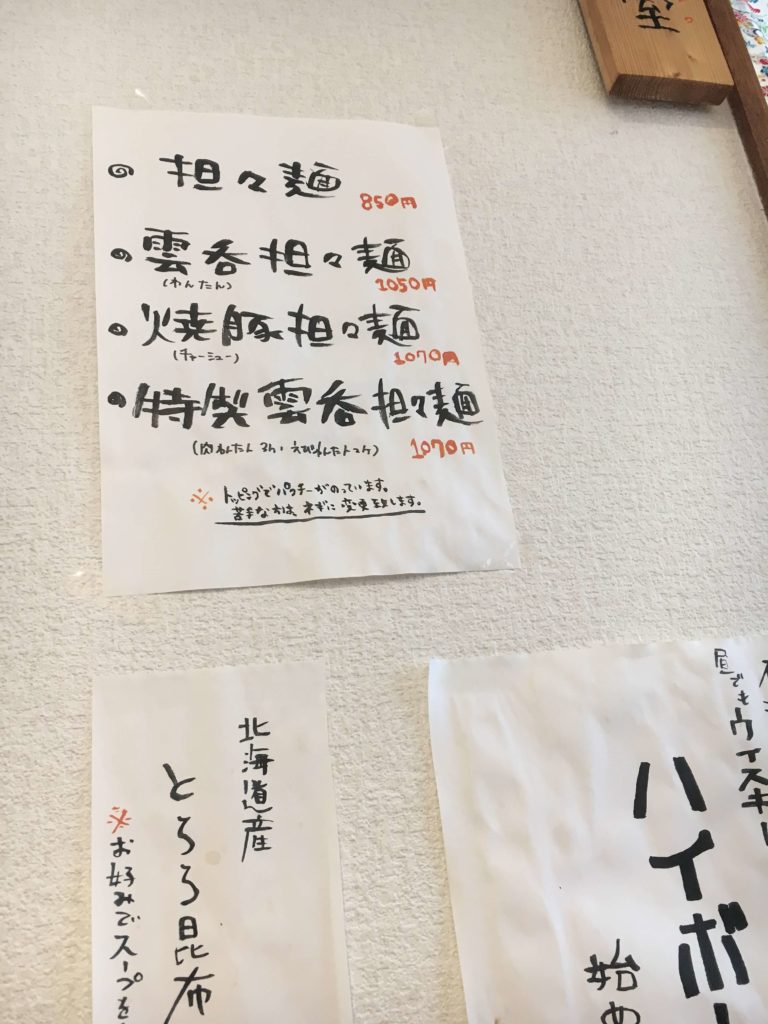 担々麺
850円
雲呑担々麺
(わんたん)
1050円
焼豚担々麺
(チャーシュー)
1070円
特製雲呑担々麺
(肉わんたん3ケ・えびわんたん1ケ)
1070円
※ トッピングでパクチーがのっています。
苦手な方は、ネギに変更致します。
北海道産
とろろ昆布
※お好みでスープを
昼でもウイスキー
ハイボー
始め